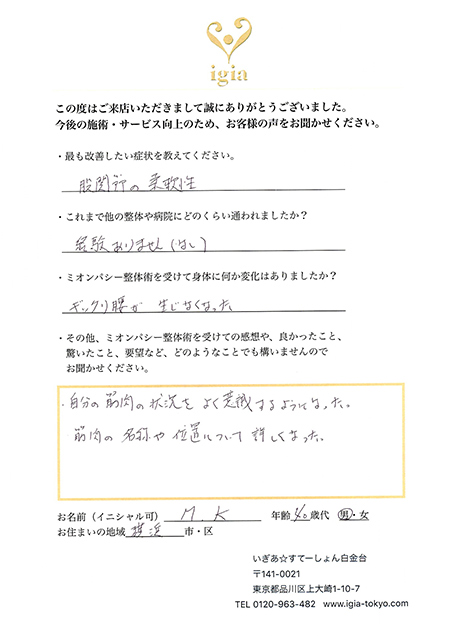 igia
この度はご来店いただきまして誠にありがとうございました。
今後の施術・サービス向上のため、お客様の声をお聞かせください。
・最も改善したい症状を教えてください。
股関節の柔軟性
・これまで他の整体や病院にどのくらい通われましたか？
経験ありません(なし)
・ミオンパシー整体術を受けて身体に何か変化はありましたか？
ギックリ腰が 生じなくなった
・その他、ミオンパシー整体術を受けての感想や、良かったこと、
驚いたこと、要望など、どのようなことでも構いませんので
お聞かせください。
・自分の筋肉の状況をよく意識するようになった。
筋肉の名称や位置について詳しくなった。
お名前（イニシャル可） M.K 年齢 40 歳代 男・女
お住まいの地域 横浜 市・区
いぎあ☆すてーしょん白金台
〒141-0021
東京都品川区上大崎1-10-7
TEL 0120-963-482 www.igia-tokyo.com